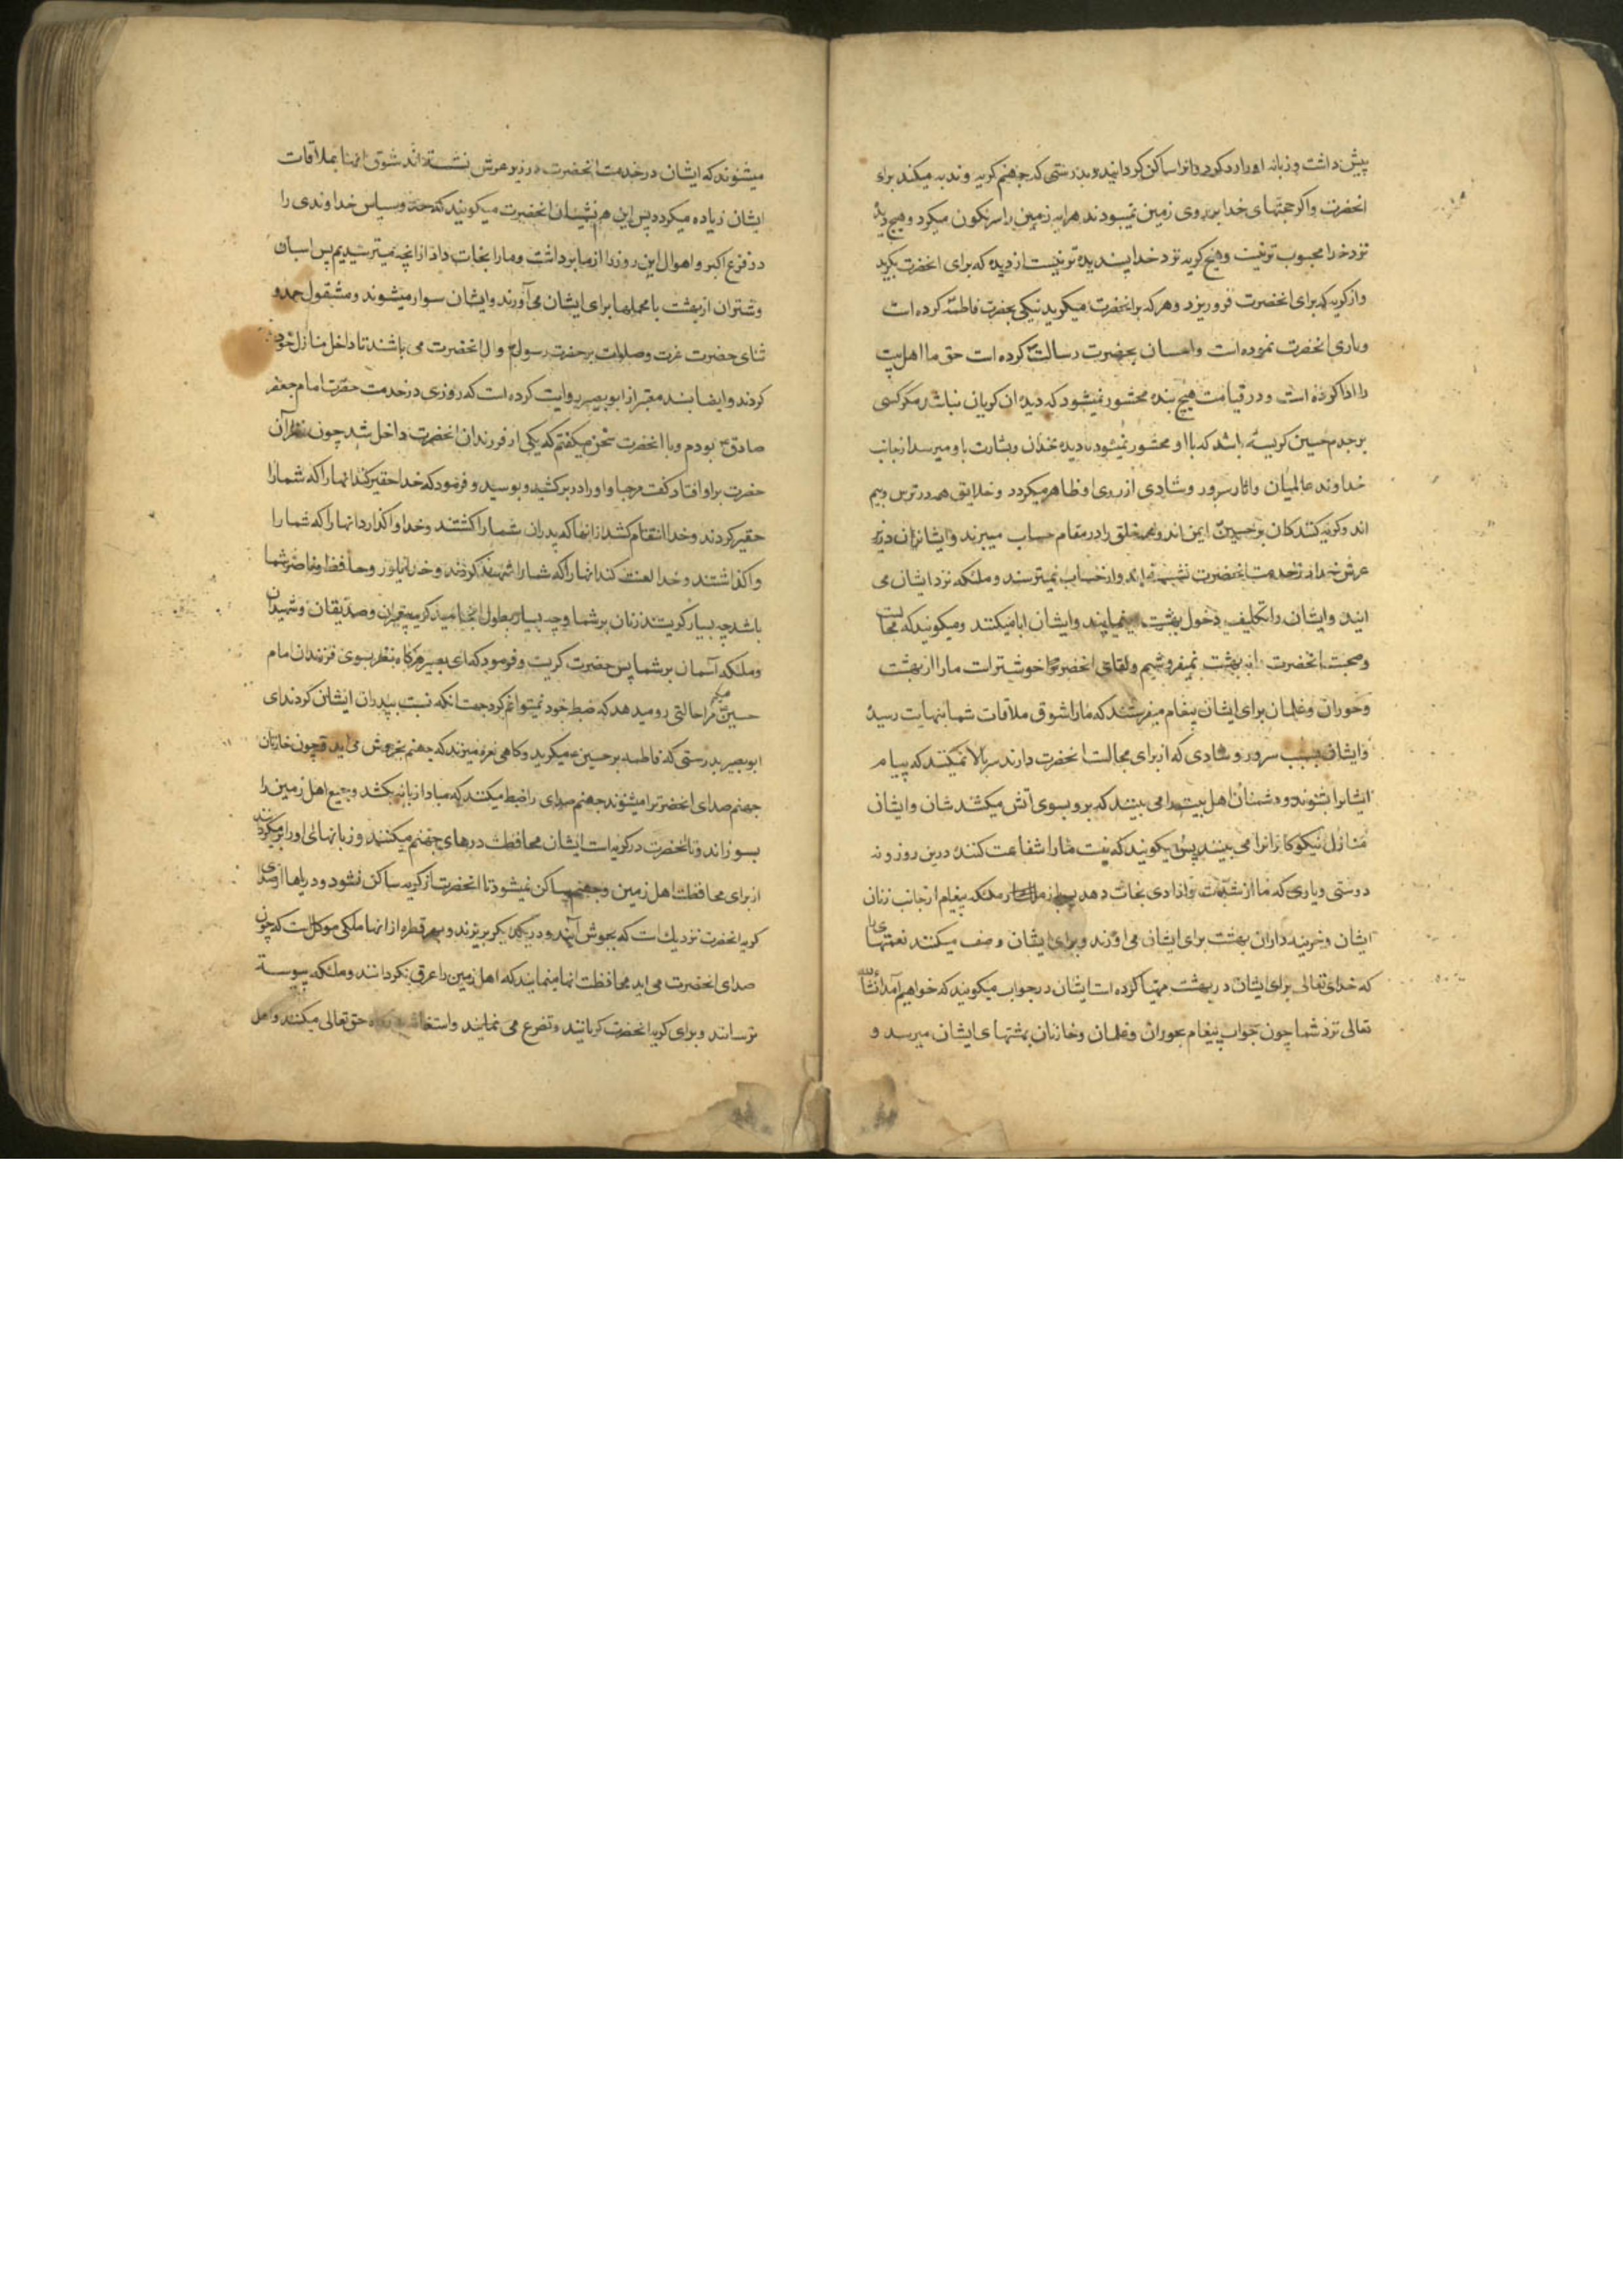 پیش داشت و زبانه او را رد کرد و انرا ساکن کردانید و بدرستی که جهنم کریه و ندبه میکند برای
انحضرت واکر حجتهای خدا بر روی زمین نمیبودند هراینه زمین را سرنکون میکرد وهیچ دیدهٔ
نزد خدا محبوب تر نیست وهیچ کریه نزد خدا پسندیده تر نیست از دیده که برای انحضرت بکرید
واز کریه که برای انحضرت فرو ریزد وهر که بر انحضرت میکرید نیکی بحضرت فاطمه کرده است
ویاری انحضرت نموده است واحسان بحضرت رسالت کرده است حق ما اهل بیت
را ادا کرده است ودر قیامت هیچ بنده محشور نمیشود که دیده ان کریان نباشد مکر کسی
بر جدم حسین کریسته باشد که با او محشور نمیشود با دیده خندان وبشارت باو میرسد از جانب
خداوند عالمیان واثار سرور وشادی از روی او ظاهر میکردد وخلایق همه در ترس وبیم
اند وکریه کنندکان بر حسین ایمن اند وهمه خلق را در مقام حساب میبرند وایشان در زیر
عرش خدا در خدمت انحضرت نشسته اند واز حساب نمیترسند وملئکه نزد ایشان می
ایند وایشان را تکلیف دخول بهشت مینمایند وایشان ابا میکنند ومیکویند که مجالست
وصحبت انحضرت را به بهشت نمیفروشیم ولقای انحضرت خوشتر است ما را از بهشت
وحوران وغلمان برای ایشان پیغام میفرستند که ما را شوق ملاقات شما بنهایت رسیده
وایشان بسبب سرور وشادی که از برای مجالست انحضرت دارند سر بالا نمیکنند که پیام
ایشانرا بشنوند ودشمنان اهل بیت را می بینند که برو بسوی آتش میکشند شان وایشان
منازل نیکوکارانرا می بینند پس میکویند که نیست ما را شفاعت کننده درین روز ونه
دوستی ویاری که ما را نجات دهد پس باز ملئکه پیغام از جانب زنان
ایشان وخزینه داران بهشت برای ایشان می اورند وبرای ایشان وصف میکنند نعمتهای را
که خدای تعالی برای ایشان در بهشت مهیا کرده است ایشان در جواب میکویند که خواهیم آمد انشاالله
تعالی نزد شما چون جواب پیغام بحوران وغلمان وخازنان بهشتهای ایشان میرسد و
میشنوند که ایشان در خدمت انحضرت در زیر عرش نشسته اند شوق انها بملاقات
ایشان زیاده میکردد پس این هم نشینان انحضرت میکویند که حمد وسپاس خداوندی را
در فزع اکبر واهوال این روز را از ما برداشت وما را نجات داد از انچه میترسیدیم پس اسبان
وشتران از بهشت با محملها برای ایشان می آورند وایشان سوار میشوند ومشغول حمد و
ثنای حضرت عزت وصلوات بر حضرت رسول وال انحضرت می باشند تا داخل منازل خود
کردند وایضا بسند معتبر از ابو بصیر روایت کرده است که روزی در خدمت حضرت امام جعفر
صادق بودم وبا انحضرت سخن میکفتم که یکی از فرزندان انحضرت داخل شد چون نظر آن
حضرت بر او افتاد کفت مرحبا واو را در بر کشید وبوسید وفرمود که خدا حقیر کند انها را که شما را
حقیر کردند وخدا انتقام کشد از انها که پدران شما را کشتند وخدا واکذارد انها را که شما را
واکذاشتند وخدا لعنت کند انها را که شما را شهید کردند وخدا یاور وحافظ وناصر شما
باشد چه بسیار کریستند زنان بر شما وچه بسیار بطول انجامید کریه پیغمبران وصدیقان وشهیدان
وملئکه آسمان بر شما پس حضرت کریست وفرمود که ای بصیر هرکاه نظر بسوی فرزندان امام
حسین میکنم مرا حالتی رو میدهد که ضبط خود نمیتوانم کرد جهت انکه نسبت بپدران ایشان کردند ای
ابو بصیر بدرستی که فاطمه بر حسین میکرید وکاهی نعره میزند که جهنم بخروش می اید وچون خازنان
جهنم صدای انحضرت را میشنوند جهنم صدای را ضبط میکنند که مبادا زبانه بکشد وجمیع اهل زمین را
بسوزاند وتا انحضرت در کریه است ایشان محافظت درهای جهنم میکنند وزبانهای او را بر میکردانند
از برای محافظت اهل زمین وجهنم ساکن نمیشود تا انحضرت از کریه ساکن نشود ودریاها از صدای
کریه انحضرت نزدیک است که بجوش آیند ودر یکدیکر بریزند وبهر قطره از انها ملکی موکل است که چون
صدای انحضرت می اید محافظت انها مینمایند که اهل زمین را غرق نکردانند وملئکه پیوسته
ترسانند وبرای کریه انحضرت کریانند وتضرع می نمایند واستغاثه حق تعالی میکنند واهل